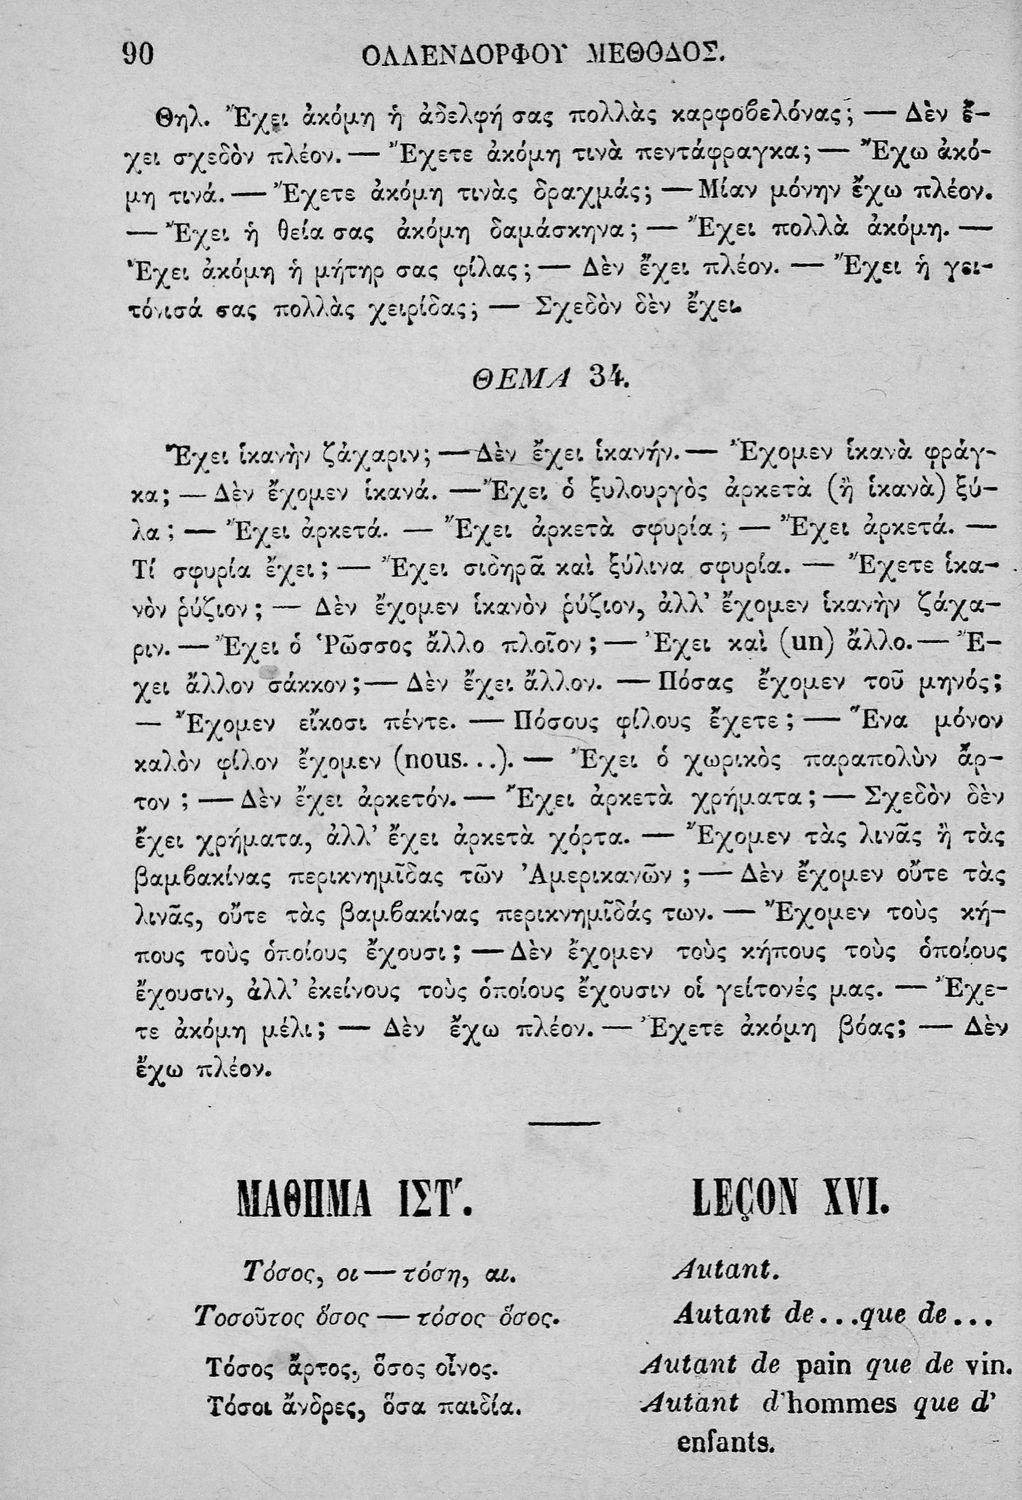 90 ΟΛΛΕΝΔΟΡΦΟΥ ΜΕΘΟΔΟΣ.
Θηλ. Ἔχει ἀκόμη ἡ ἀδελφή σας πολλὰς καρφοβελόνας; — Δὲν ἔ-
χει σχεδὸν πλέον. — Ἔχετε ἀκόμη τινὰ πεντάφραγκα; — Ἔχω ἀκό-
μη τινά. — Ἔχετε ἀκόμη τινὰς δραχμάς; — Μίαν μόνην ἔχω πλέον.
— Ἔχει ἡ θεία σας ἀκόμη δαμάσκηνα; — Ἔχει πολλὰ ἀκόμη. —
Ἔχει ἀκόμη ἡ μήτηρ σας φίλας; — Δὲν ἔχει πλέον. — Ἔχει ἡ γει-
τόνισά σας πολλὰς χειρίδας; — Σχεδὸν δὲν ἔχει.
ΘΕΜΑ 34.
Ἔχει ἱκανὴν ζάχαριν; — Δὲν ἔχει ἱκανήν. — Ἔχομεν ἱκανὰ φράγ-
κα; — Δὲν ἔχομεν ἱκανά. — Ἔχει ὁ ξυλουργὸς ἀρκετὰ (ἢ ἱκανὰ) ξύ-
λα; — Ἔχει ἀρκετά. — Ἔχει ἀρκετὰ σφυρία; — Ἔχει ἀρκετά. —
Τί σφυρία ἔχει; — Ἔχει σιδηρᾶ καὶ ξύλινα σφυρία. — Ἔχετε ἱκα-
νὸν ῥύζιον; — Δὲν ἔχομεν ἱκανὸν ῥύζιον, ἀλλ' ἔχομεν ἱκανὴν ζάχα-
ριν. — Ἔχει ὁ Ῥῶσσος ἄλλο πλοῖον; — Ἔχει καὶ (un) ἄλλο. — Ἔ-
χει ἄλλον σάκκον; — Δὲν ἔχει ἄλλον. — Πόσας ἔχομεν τοῦ μηνός;
— Ἔχομεν εἴκοσι πέντε. — Πόσους φίλους ἔχετε; — Ἕνα μόνον
καλὸν φίλον ἔχομεν (nous...). — Ἔχει ὁ χωρικὸς παραπολὺν ἄρ-
τον; — Δὲν ἔχει ἀρκετόν. — Ἔχει ἀρκετὰ χρήματα; — Σχεδὸν δὲν
ἔχει χρήματα, ἀλλ' ἔχει ἀρκετὰ χόρτα. — Ἔχομεν τὰς λινᾶς ἢ τὰς
βαμβακίνας περικνημῖδας τῶν Ἀμερικανῶν; — Δὲν ἔχομεν οὔτε τὰς
λινᾶς, οὔτε τὰς βαμβακίνας περικνημῖδάς των. — Ἔχομεν τοὺς κή-
πους τοὺς ὁποίους ἔχουσι; — Δὲν ἔχομεν τοὺς κήπους τοὺς ὁποίους
ἔχουσιν, ἀλλ' ἐκείνους τοὺς ὁποίους ἔχουσιν οἱ γείτονές μας. — Ἔχε-
τε ἀκόμη μέλι; — Δὲν ἔχω πλέον. — Ἔχετε ἀκόμη βόας; — Δὲν
ἔχω πλέον.
ΜΑΘΗΜΑ ΙΣΤʹ. LEÇON XVI.
Τόσος, οι — τόση, αι. Autant.
Τοσοῦτος ὅσος — τόσος ὅσος. Autant de...que de...
Τόσος ἄρτος, ὅσος οἶνος. Autant de pain que de vin.
Τόσοι ἄνδρες, ὅσα παιδία. Autant d'hommes que d'
enfants.